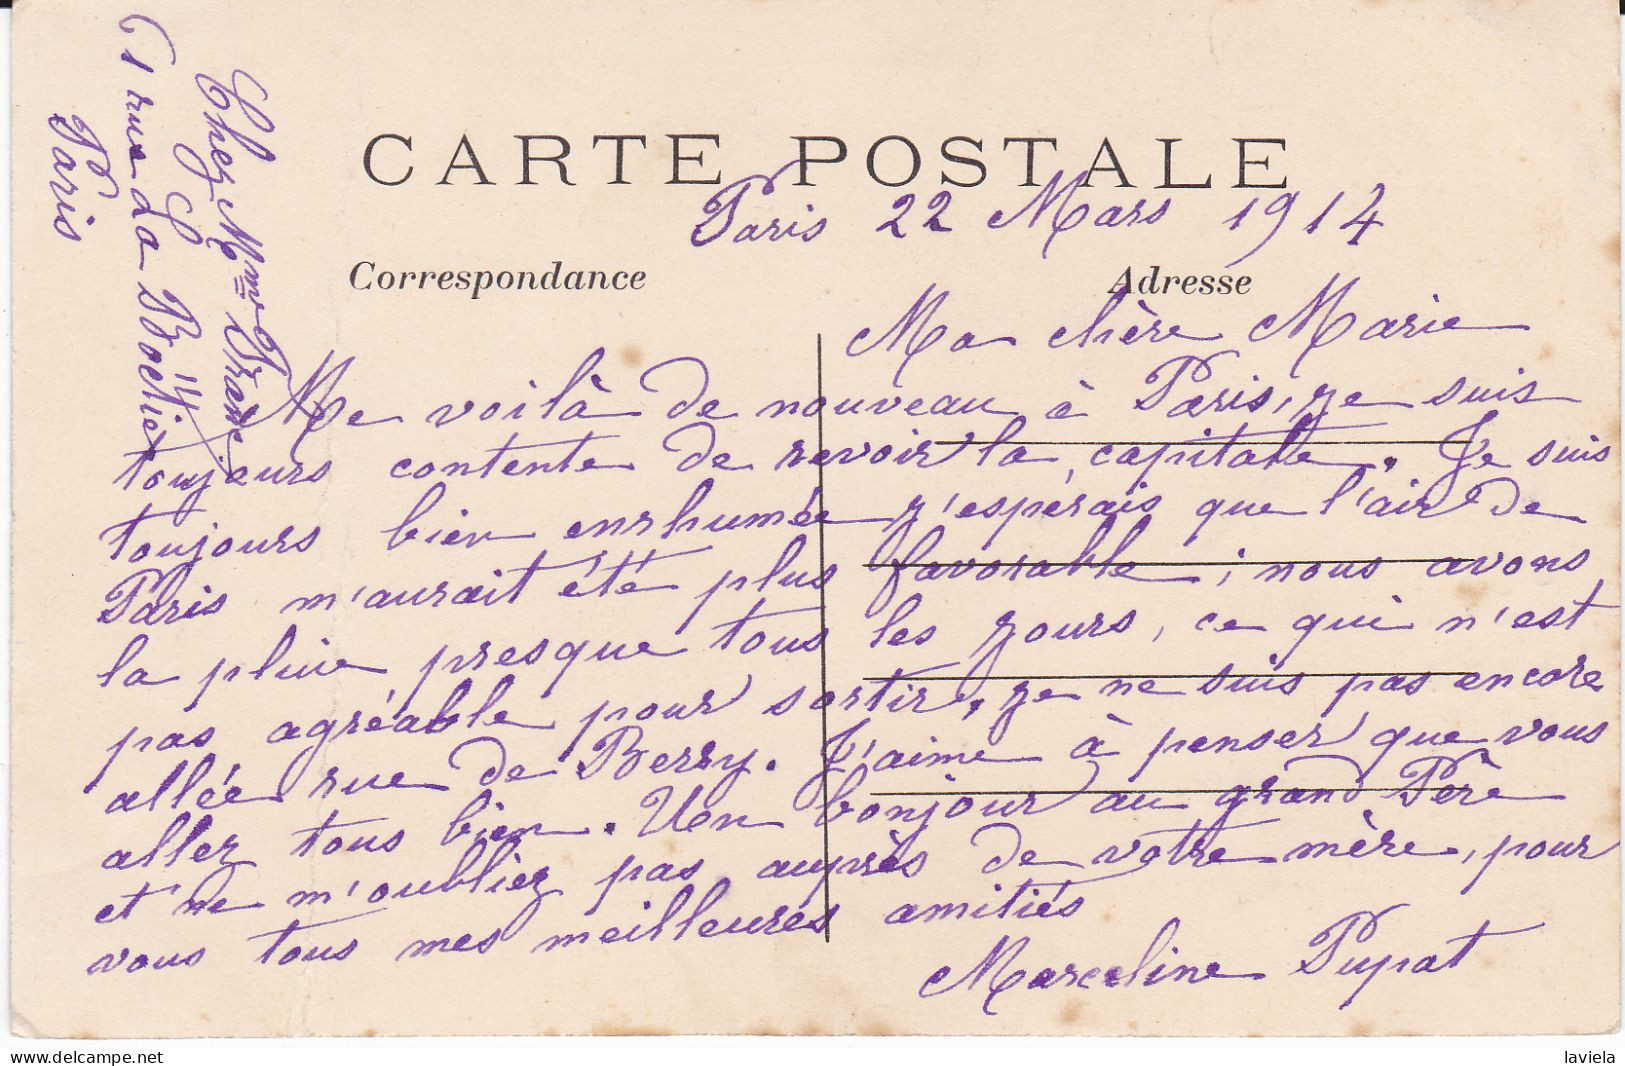 CARTE POSTALE
Paris 22 Mars 1914
Correspondance
Adresse
Ma chère Marie
Me voilà de nouveau à Paris, je suis
toujours contente de revoir la capitale. Je suis
toujours bien enrhumée j'espérais que l'air de
Paris m'aurait été plus favorable ; nous avons
la pluie presque tous les jours, ce qui n'est
pas agréable pour sortir, je ne suis pas encore
allée rue de Berry. J'aime à penser que vous
allez tous bien. Un bonjour au grand Père
et ne m'oubliez pas auprès de votre mère, pour
vous tous mes meilleures amitiés
Marceline Pupat
Chez Mme
rue La Boëtie
Paris
laviela